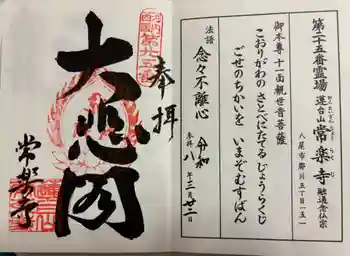 第二十五番霊場
蓮台山 常楽寺 融通念仏宗
八尾市郡川五丁目一五一
御本尊 十一面観世音菩薩
こおりがわの さとべにたてる じょうらくじ
ごせのちかいを いまぞむすばん
法語 念々不離心
参拝 令和八年三月廿二日
奉拝
河内西国第廿五番
大悲閣
常楽寺